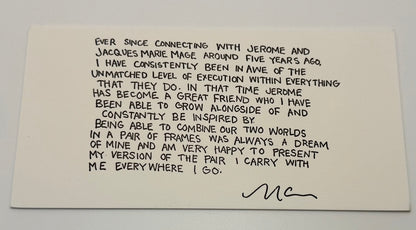 EVER SINCE CONNECTING WITH JEROME AND
JACQUES MARIE MAGE AROUND FIVE YEARS AGO,
I HAVE CONSISTENTLY BEEN IN AWE OF THE
UNMATCHED LEVEL OF EXECUTION WITHIN EVERYTHING
THAT THEY DO. IN THAT TIME JEROME
HAS BECOME A GREAT FRIEND WHO I HAVE
BEEN ABLE TO GROW ALONGSIDE OF AND
CONSTANTLY BE INSPIRED BY.
BEING ABLE TO COMBINE OUR TWO WORLDS
IN A PAIR OF FRAMES WAS ALWAYS A DREAM
OF MINE AND AM VERY HAPPY TO PRESENT
MY VERSION OF THE PAIR I CARRY WITH
ME EVERYWHERE I GO.